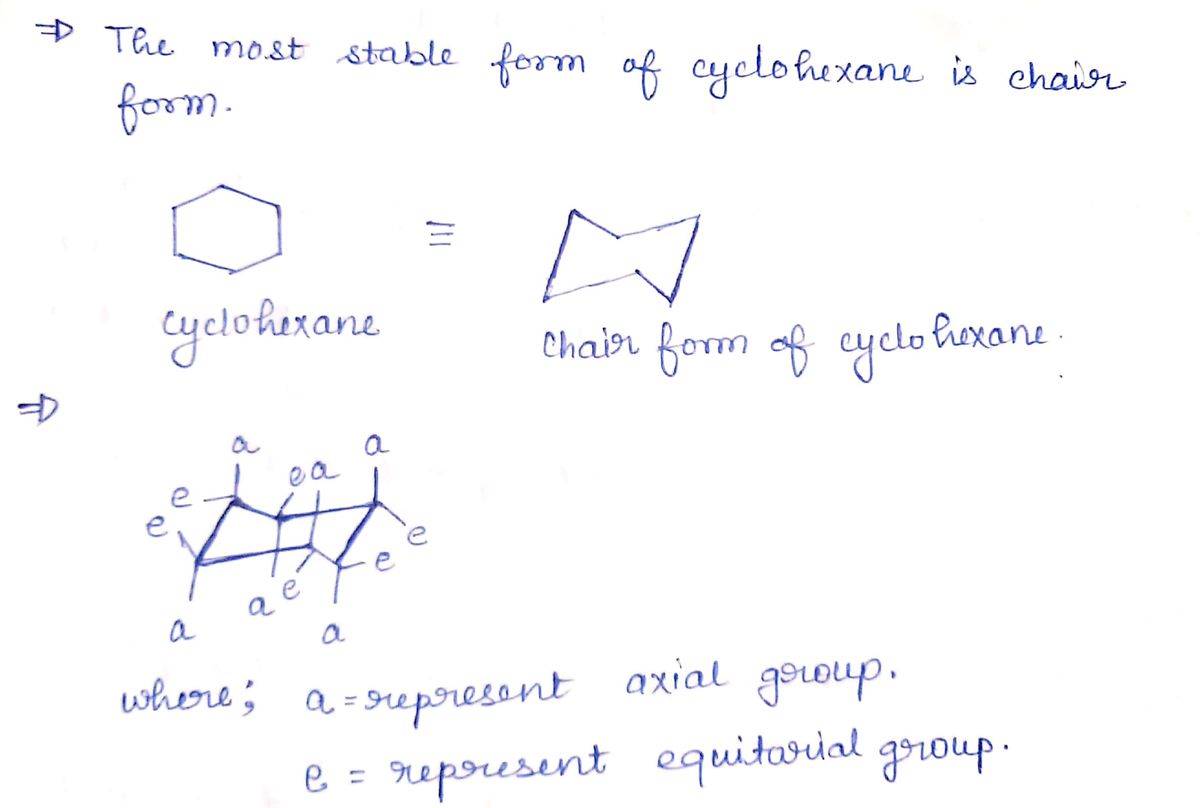 ⇒ The most stable form of cyclohexane is chair
form.
≡
cyclohexane
chair form of cyclohexane.
⇒
a a
e a
e
e
e
e
a e
a a
where; a = represent axial group.
e = represent equitorial group.